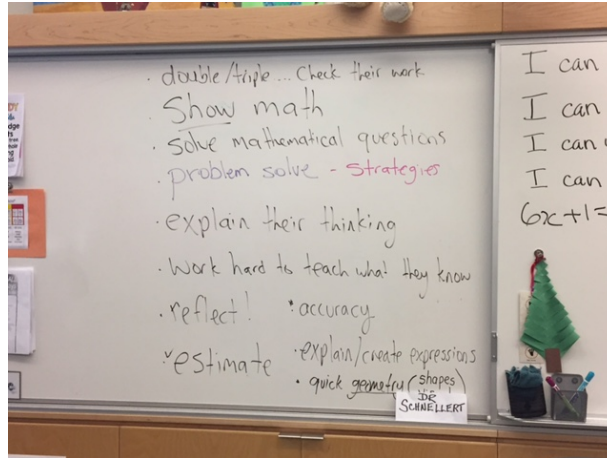 · double/triple... Check their work
Show math
· solve mathematical questions
· problem solve - strategies
· explain their thinking
· Work hard to teach what they know
· reflect!
· accuracy
· estimate
· explain/create expressions
· quick geometry (shapes)
DR
SCHNELLERT
I can
I can
I can
I can
6x+1=